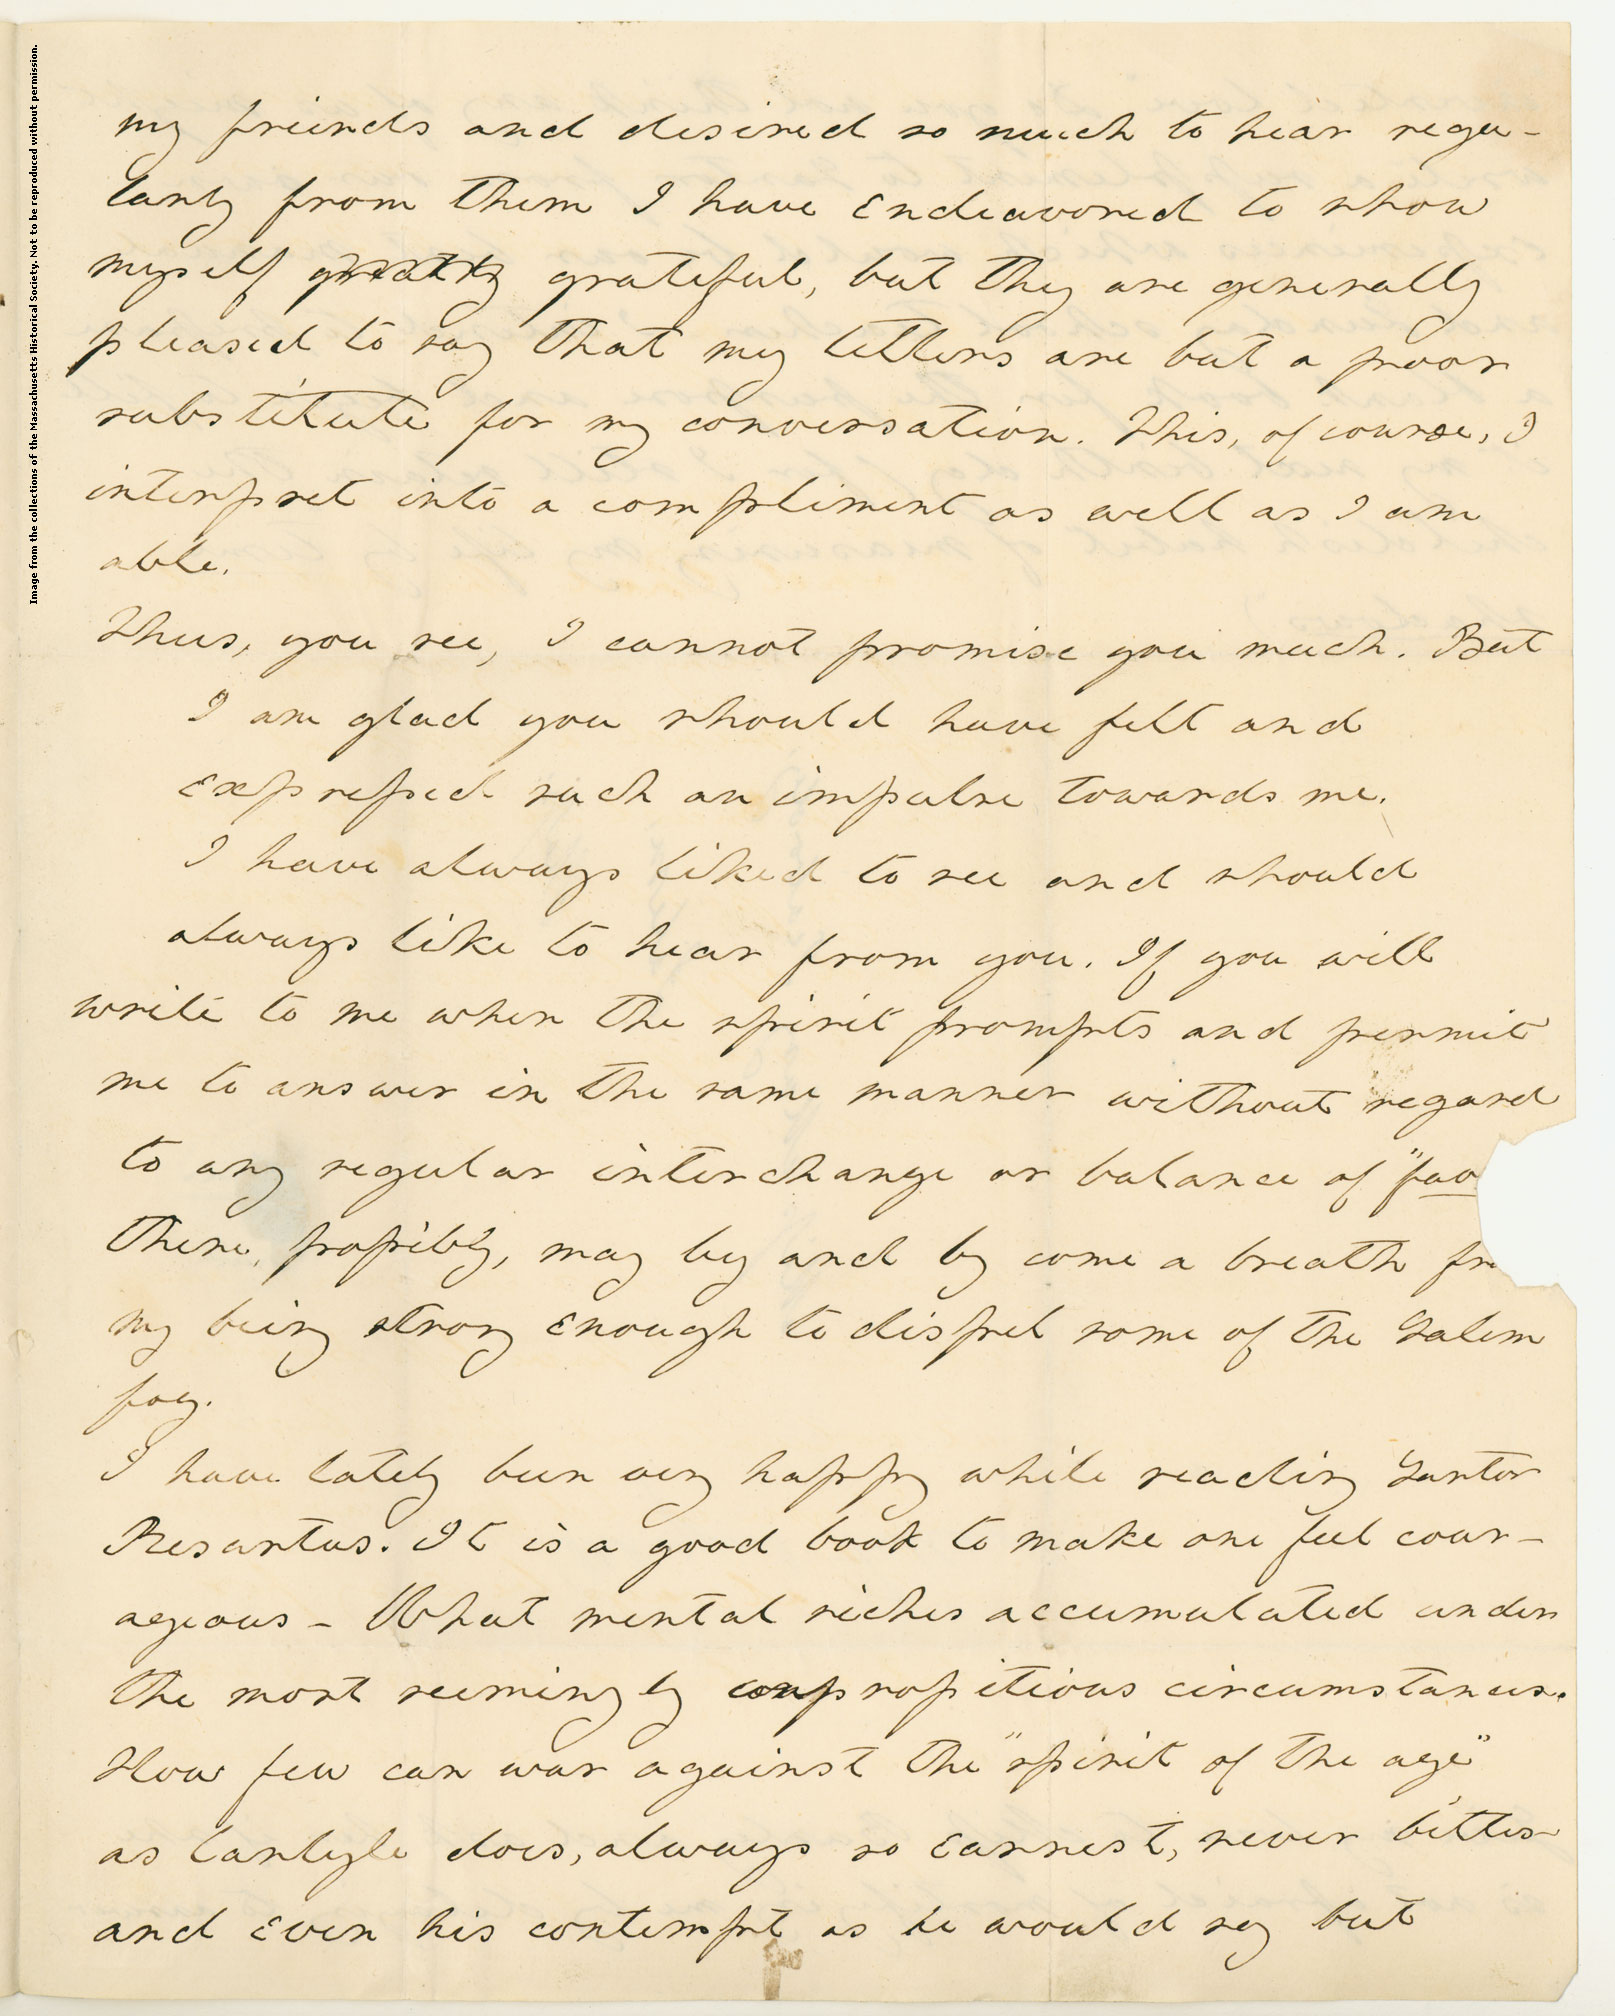 Image from the collections of the Massachusetts Historical Society. Not to be reproduced without permission.
my friends and desired so much to hear regu-
larly from them I have endeavored to show
myself greatly grateful, but they are generally
pleased to say that my letters are but a poor
substitute for my conversation. This, of course, I
interpret into a compliment as well as I am
able.
Thus, you see, I cannot promise you much. But
I am glad you should have felt and
expressed such an impulse towards me.
I have always liked to see and should
always like to hear from you. If you will
write to me when the spirit prompts and permit
me to answer in the same manner without regard
to any regular interchange or balance of "fav
there, possibly, may by and by come a breath fr
my being strong enough to dispel some of the Salem
fog.
I have lately been very happy while reading Sartor
Resartus. It is a good book to make one feel cour-
ageous – What mental riches accumulated under
the most seemingly unpropitious circumstances.
How few can war against the "spirit of the age"
as Carlyle does, always so earnest, never bitter
and even his contempt as he would say but